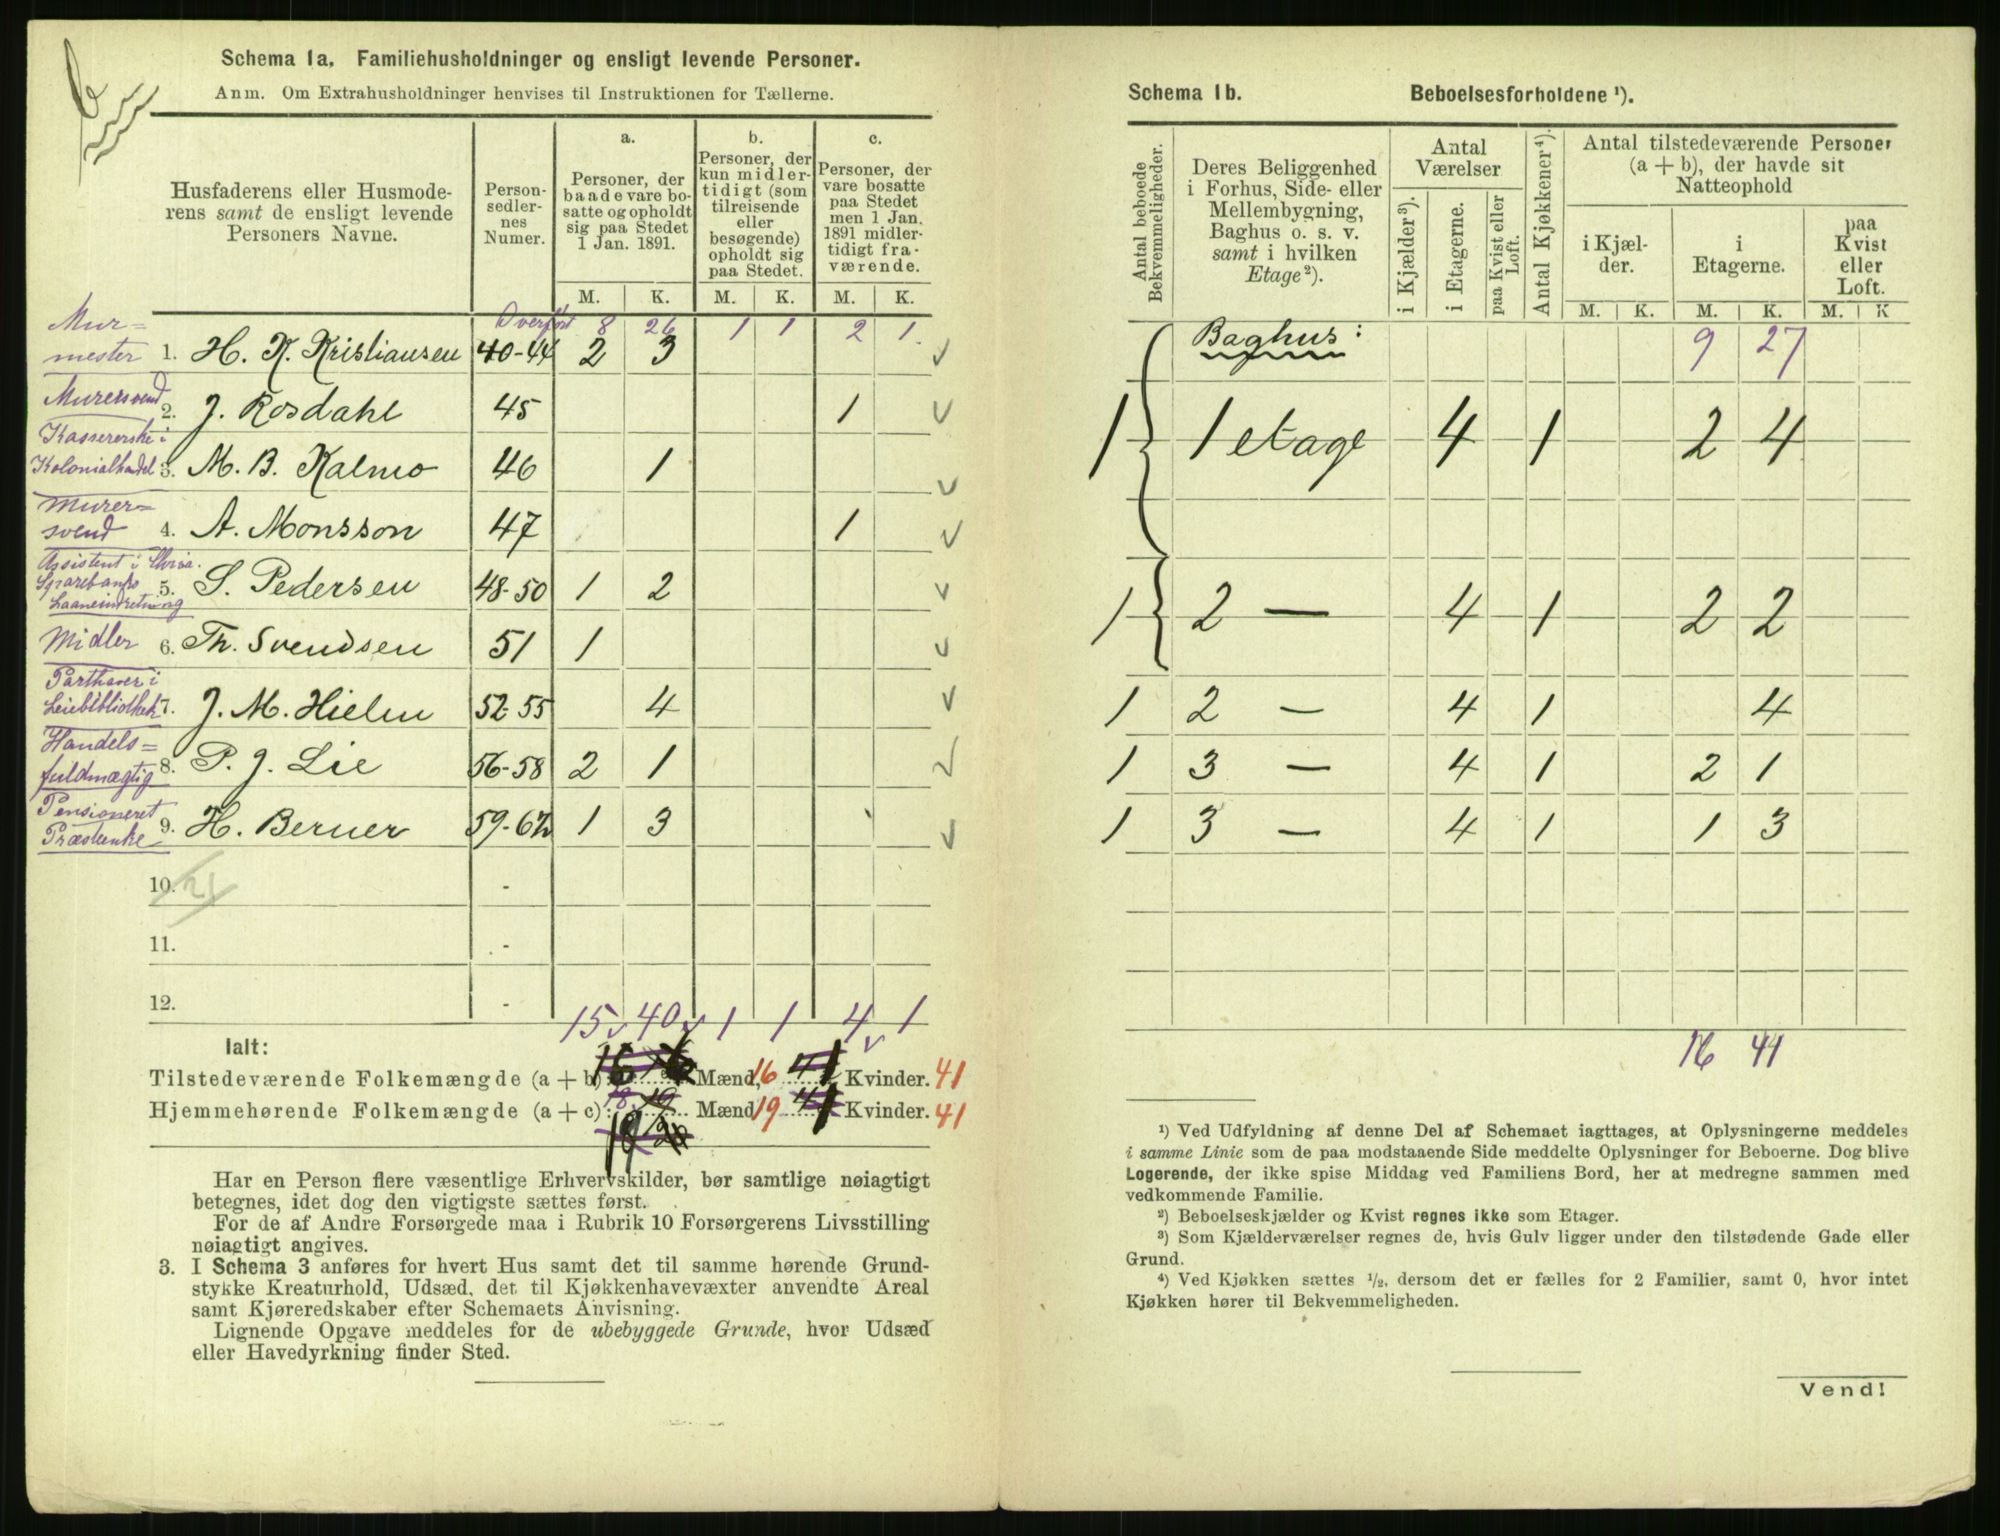 Schema 1a. Familiehusholdninger og ensligt levende Personer.
Anm. Om Extrahusholdninger henvises til Instruktionen for Tællerne.
Husfaderens eller Husmode-
rens samt de ensligt levende
Personers Navne.
Person-
sedler-
nes
Numer.
a.
Personer, der
baade vare bo-
satte og opholdt
sig paa Stedet
1 Jan. 1891.
b.
Personer, der
kun midler-
tidigt (som
tilreisende
eller
besøgende)
opholdt sig
paa Stedet.
c.
Personer, der
vare bosatte
paa Stedet
men 1 Jan.
1891 midler-
tidigt fra-
værende.
M. K. M. K. M. K.
Overført 8 26 1 1 2 1
Mur=
mester 1. H. K. Kristiansen 40-44 2 3
Murersvend 2. J. Rosdahl 45 1
Kassererske i
Kolonialhandel 3. M. B. Kalmo 46 1
Murer=
svend 4. A. Monsson 47 1
Assistent i Chria.
Sparebanks
Laaneindretning 5. S. Pedersen 48-50 1 2
Midler 6. Th. Svendsen 51 1
Parthaver i
Leiebibliothek 7. J. M. Hielm 52-55 4
Handels=
fuldmægtig 8. P. J. Lie 56-58 2 1
Pensioneret
Præsteenke 9. H. Berner 59-62 1 3
10. 21 -
11. -
12. -
15 40 1 1 4 1
Ialt:
Tilstedeværende Folkemængde (a + b) Mænd, 16 Kvinder. 41
Hjemmehørende Folkemængde (a + c): Mænd 19 Kvinder. 41
Har en Person flere væsentlige Erhvervskilder, bør samtlige nøiagtigt
betegnes, idet dog den vigtigste sættes først.
For de af Andre Forsørgede maa i Rubrik 10 Forsørgerens Livsstilling
nøiagtigt angives.
3. I Schema 3 anføres for hvert Hus samt det til samme hørende Grund-
stykke Kreaturhold, Udsæd, det til Kjøkkenhavevæxter anvendte Areal
samt Kjøreredskaber efter Schemaets Anvisning.
Lignende Opgave meddeles for de ubebyggede Grunde, hvor Udsæd
eller Havedyrkning finder Sted.
Schema 1b. Beboelsesforholdene ¹).
Antal beboede
Bekvemmeligheder.
Deres Beliggenhed
i Forhus, Side- eller
Mellembygning,
Baghus o. s. v.
samt i hvilken
Etage²).
Antal
Værelser
i Kjælder³).
i Etagerne.
paa Kvist eller
Loft.
Antal Kjøkkener⁴).
Antal tilstedeværende Personer
(a + b), der havde sit
Natteophold
i Kjæl-
der.
i
Etagerne.
paa
Kvist
eller
Loft.
M. K. M. K. M. K
Baghus: 9 27
1 1 etage 4 1 2 4
1 2 — 4 1 2 2
1 2 — 4 1 4
1 3 — 4 1 2 1
1 3 — 4 1 1 3
16 41
¹) Ved Udfyldning af denne Del af Schemaet iagttages, at Oplysningerne meddeles
i samme Linie som de paa modstaaende Side meddelte Oplysninger for Beboerne. Dog blive
Logerende, der ikke spise Middag ved Familiens Bord, her at medregne sammen med
vedkommende Familie.
²) Beboelseskjælder og Kvist regnes ikke som Etager.
³) Som Kjælderværelser regnes de, hvis Gulv ligger under den tilstødende Gade eller
Grund.
⁴) Ved Kjøkken sættes ½, dersom det er fælles for 2 Familier, samt 0, hvor intet
Kjøkken hører til Bekvemmeligheden.
Vend!